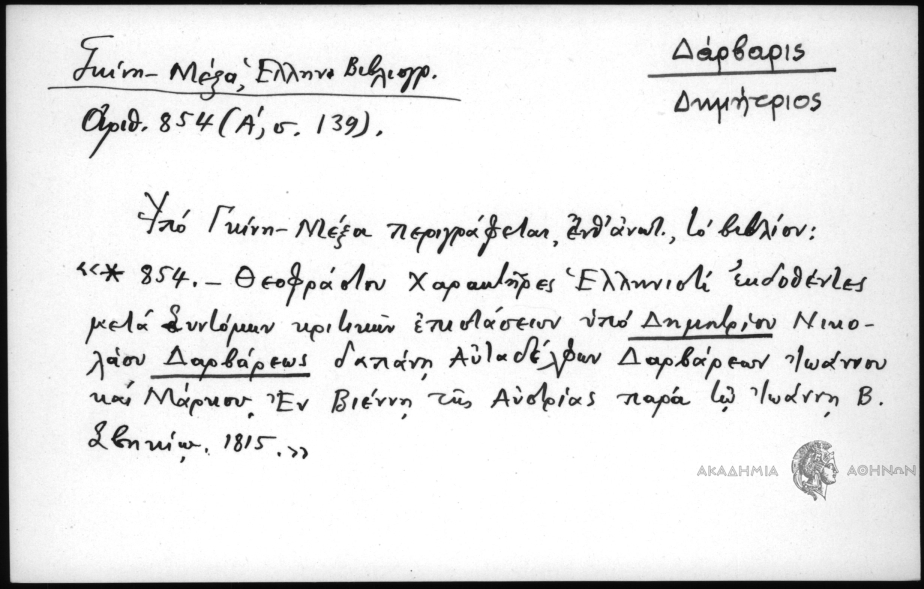 Γκίνη-Μέξα, Ἑλλην. Βιβλιογρ.
Ἀριθ. 854 (Α', σ. 139).
Δάρβαρις
Δημήτριος
Ὑπό Γκίνη-Μέξα περιγράφεται, ἔνθ' ἀνωτ., τό βιβλίον:
«* 854. – Θεοφράστου Χαρακτῆρες Ἑλληνιστί ἐκδοθέντες
μετά Συντόμων κριτικῶν ἐπιστάσεων ὑπό Δημητρίου Νικο-
λάου Δαρβάρεως δαπάνῃ Αὐταδέλφων Δαρβάρεων Ἰωάννου
καί Μάρκου, Ἐν Βιέννῃ τῆς Αὐστρίας παρά τῷ Ἰωάννῃ Β.
Σβηκίῳ. 1815.»
ΑΚΑΔΗΜΙΑ ΑΘΗΝΩΝ